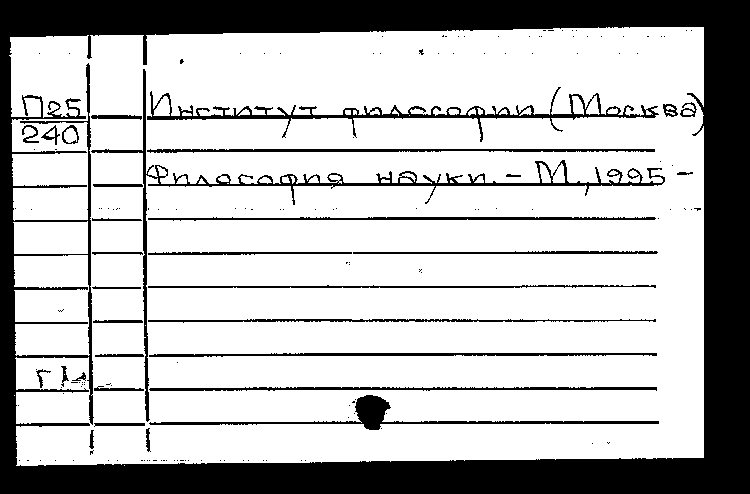 П25
240
Институт философии (Москва)
Философия науки. - М., 1995 -